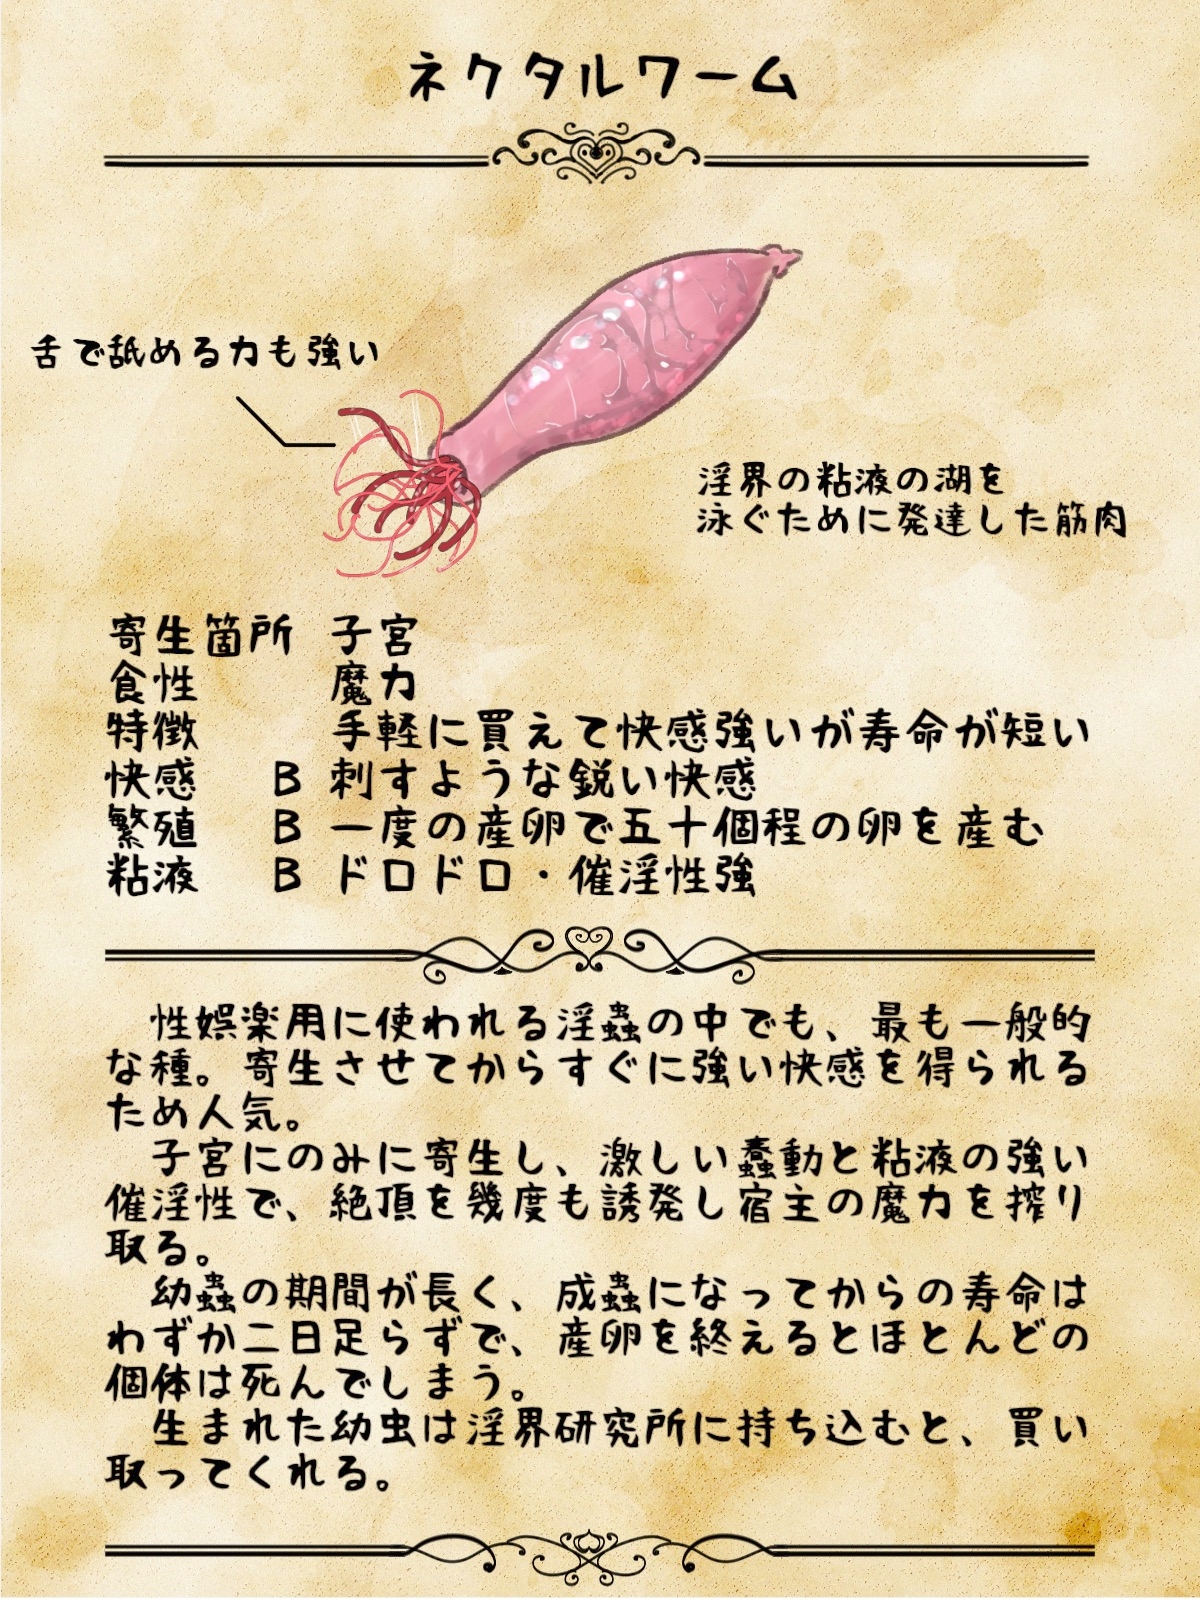 ネクタルワーム
舌で舐める力も強い
淫界の粘液の湖を
泳ぐために発達した筋肉
寄生箇所 子宮
食性 魔力
特徴 手軽に買えて快感強いが寿命が短い
快感 B 刺すような鋭い快感
繁殖 B 一度の産卵で五十個程の卵を産む
粘液 B ドロドロ・催淫性強
性娯楽用に使われる淫蟲の中でも、最も一般的
な種。寄生させてからすぐに強い快感を得られる
ため人気。
子宮にのみに寄生し、激しい蠢動と粘液の強い
催淫性で、絶頂を幾度も誘発し宿主の魔力を搾り
取る。
幼蟲の期間が長く、成蟲になってからの寿命は
わずか二日足らずで、産卵を終えるとほとんどの
個体は死んでしまう。
生まれた幼虫は淫界研究所に持ち込むと、買い
取ってくれる。